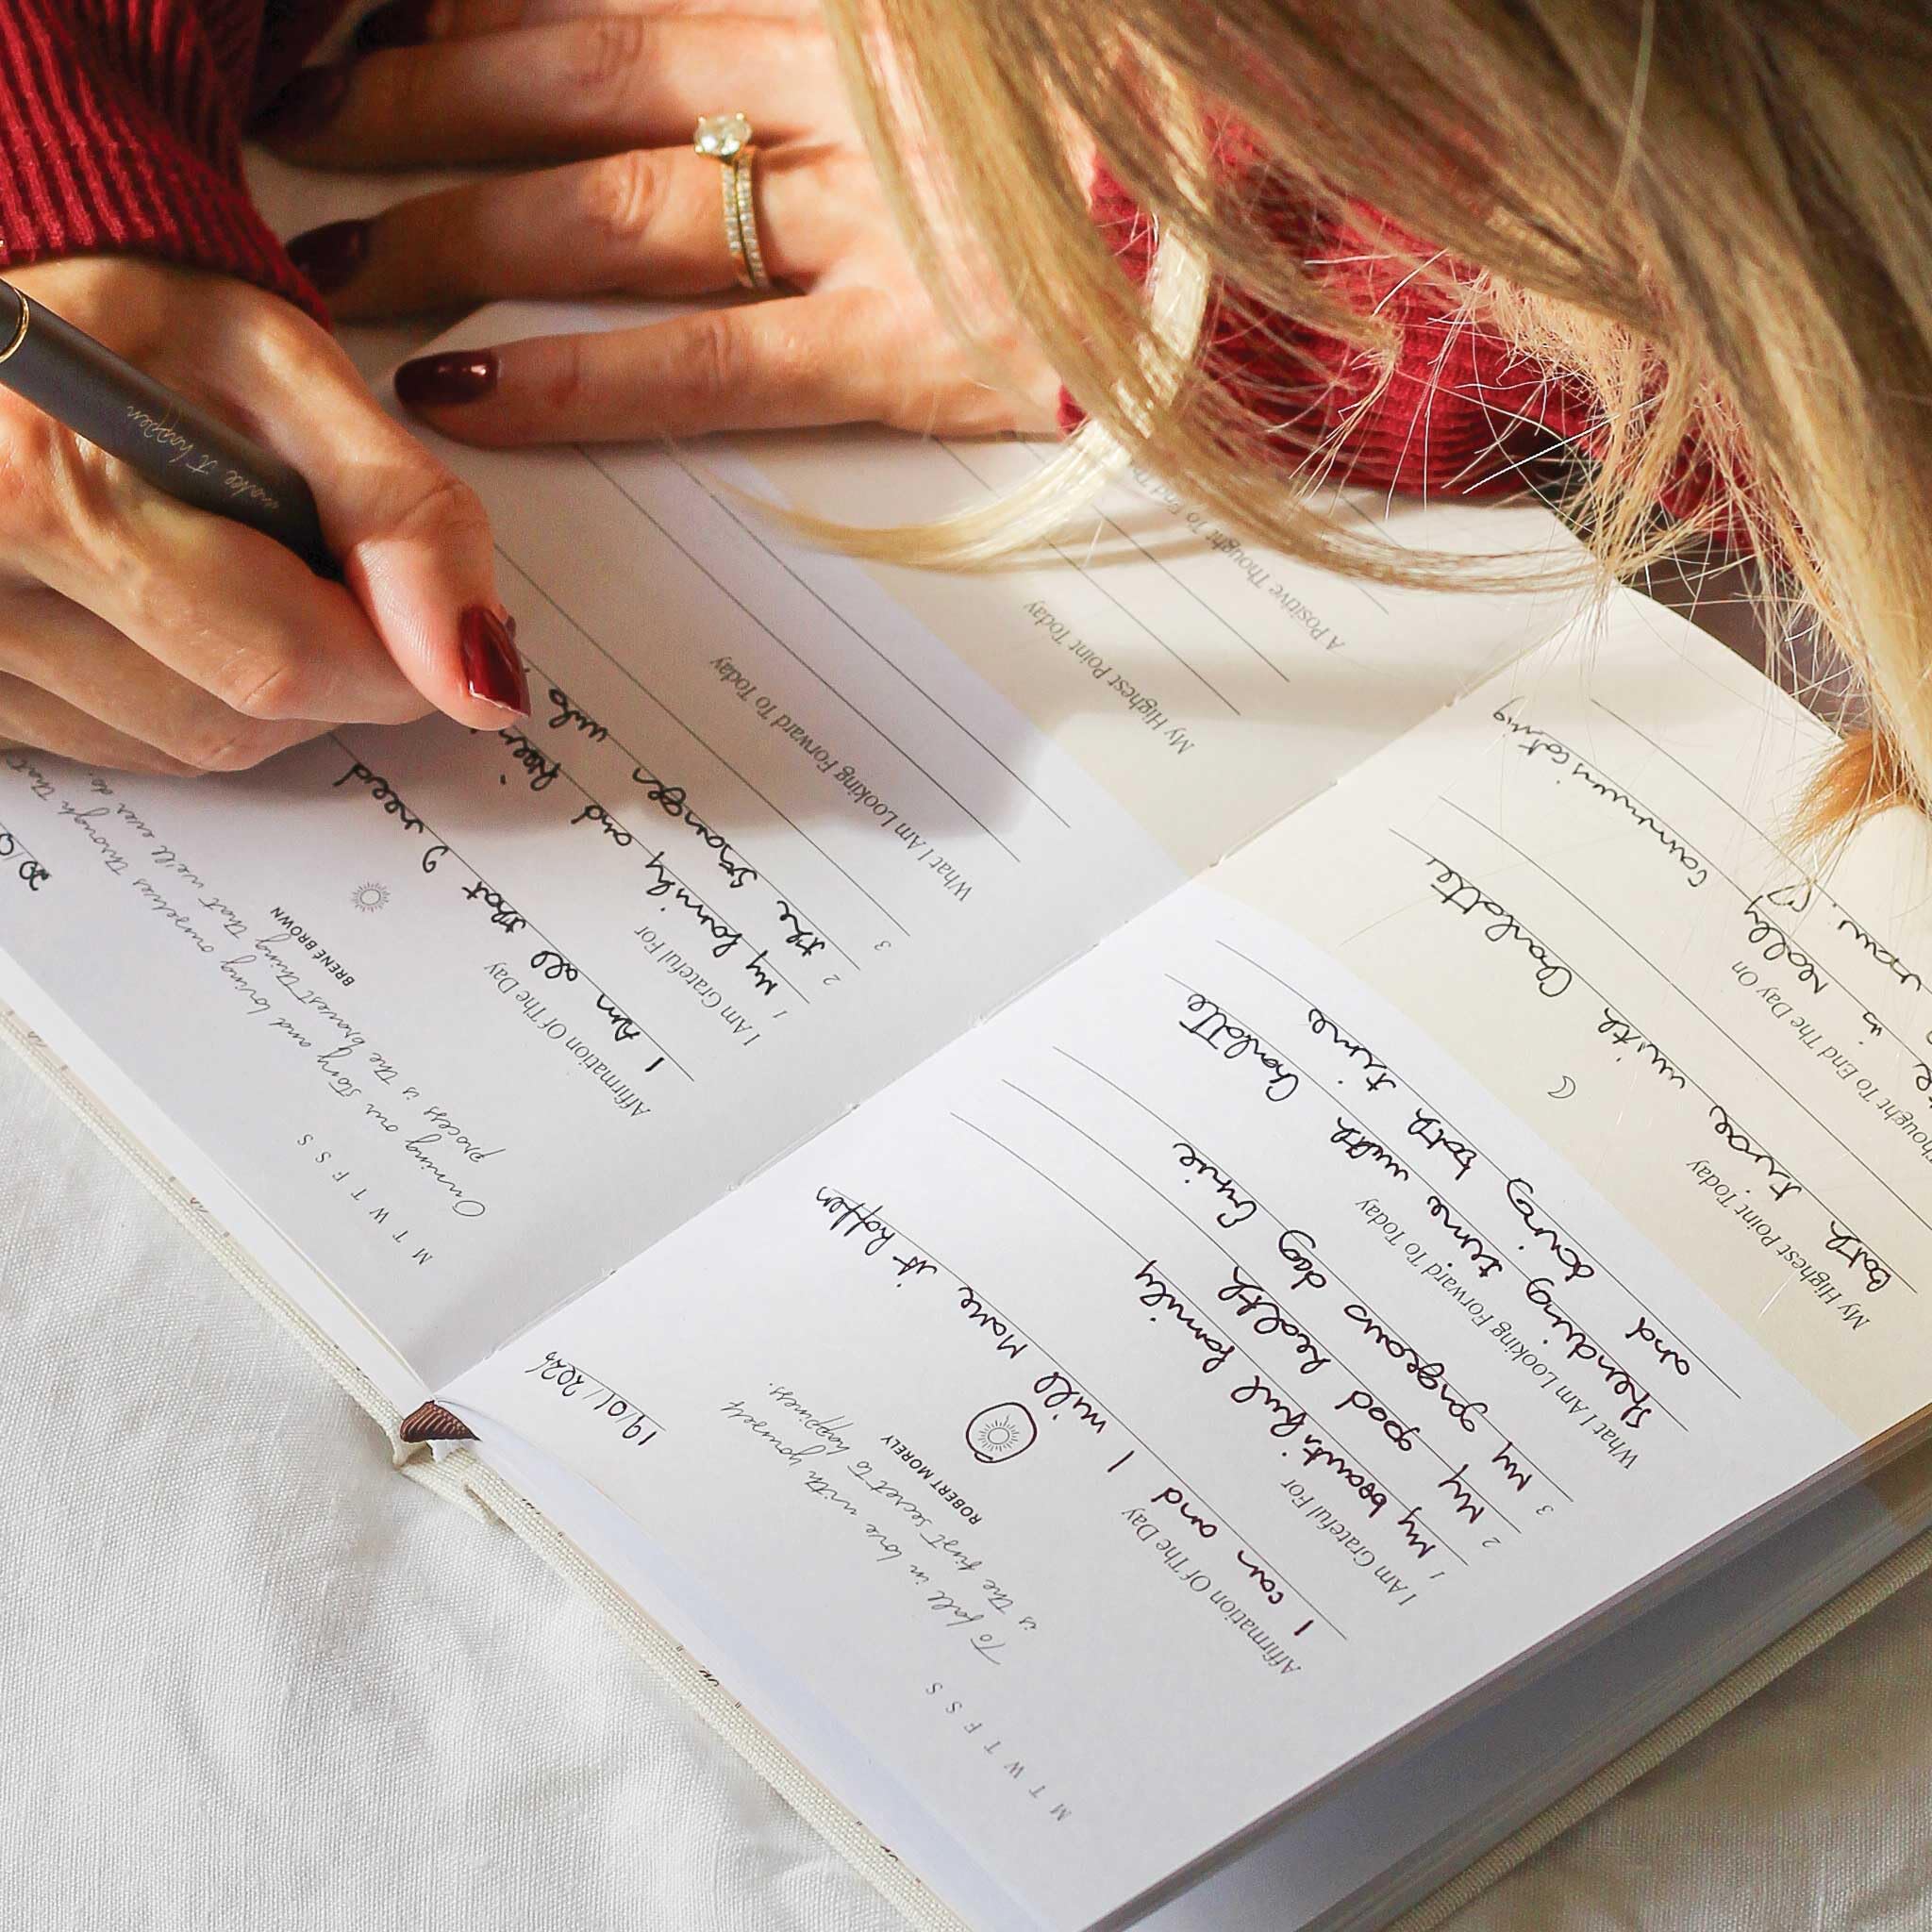 M T W T F S S 19/01/2024
To fall in love with yourself
is the first secret to happiness.
ROBERT MORELY
Affirmation Of The Day
I can and I will Make it happen
I Am Grateful For
1 My beautiful family
2 My good health
3 My gorgeous dog Ernie
What I Am Looking Forward To Today
Spending time with Charlotte
and doing bath time
My Highest Point Today
Bath time with Charlotte
Thought To End The Day On
is Really
now!
M T W T F S S 20/0
Owning our story and loving ourselves through that
process is the bravest thing that we'll ever do.
BRENÉ BROWN
Affirmation Of The Day
I Am all that I need
I Am Grateful For
1 My family and
2 the stranger who
3
What I Am Looking Forward To Today
My Highest Point Today
A Positive Thought To End
make it happen